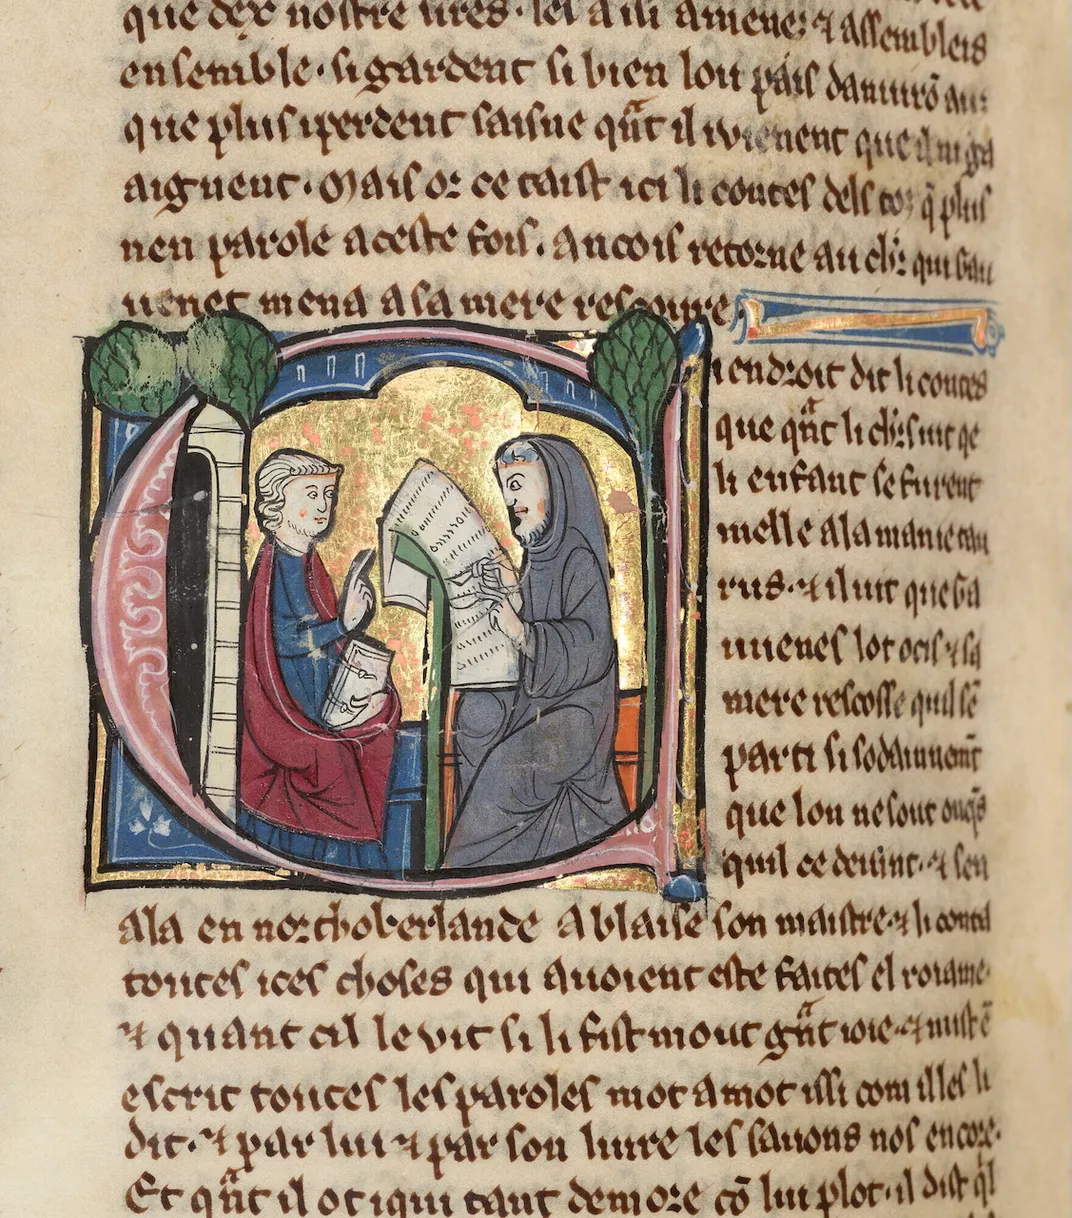 que dex nostre sires les a ssi amenez ⁊ assembleis
ensemble · si gardent si bien lou païs dantirō
que plus iperdent saisne qnt il ivienent que
aignent · Mais or ce taist ici li contes dels q̄ plus
nen parole aceste fois. Ancois retorne au chr qui
menet mena a sa mere rescoure
endroit dit li contes
que qnt li chrs uit qe
li enfant se furent
melle a la manie
rus · ⁊ il uit que ga
uuenes lot ocis ⁊ sa
mere rescosse quil sē
parti si sodainnemt
que lon ne sout onqs
quil ce deuint · ⁊ sen
ala en northoberlande a blaise son maistre · ⁊ li conta
toutes ices choses qui auoient este faites el roiame ·
⁊ quant cil le vit si li fist mout gnt ioie · ⁊ mist ē
escrit toutes les paroles mot a mot issi com il les li
dit · ⁊ par lui ⁊ par son liure les sauons nos encore ·
Et qnt il ot iqui tant demore cō lui plot · il dist ql